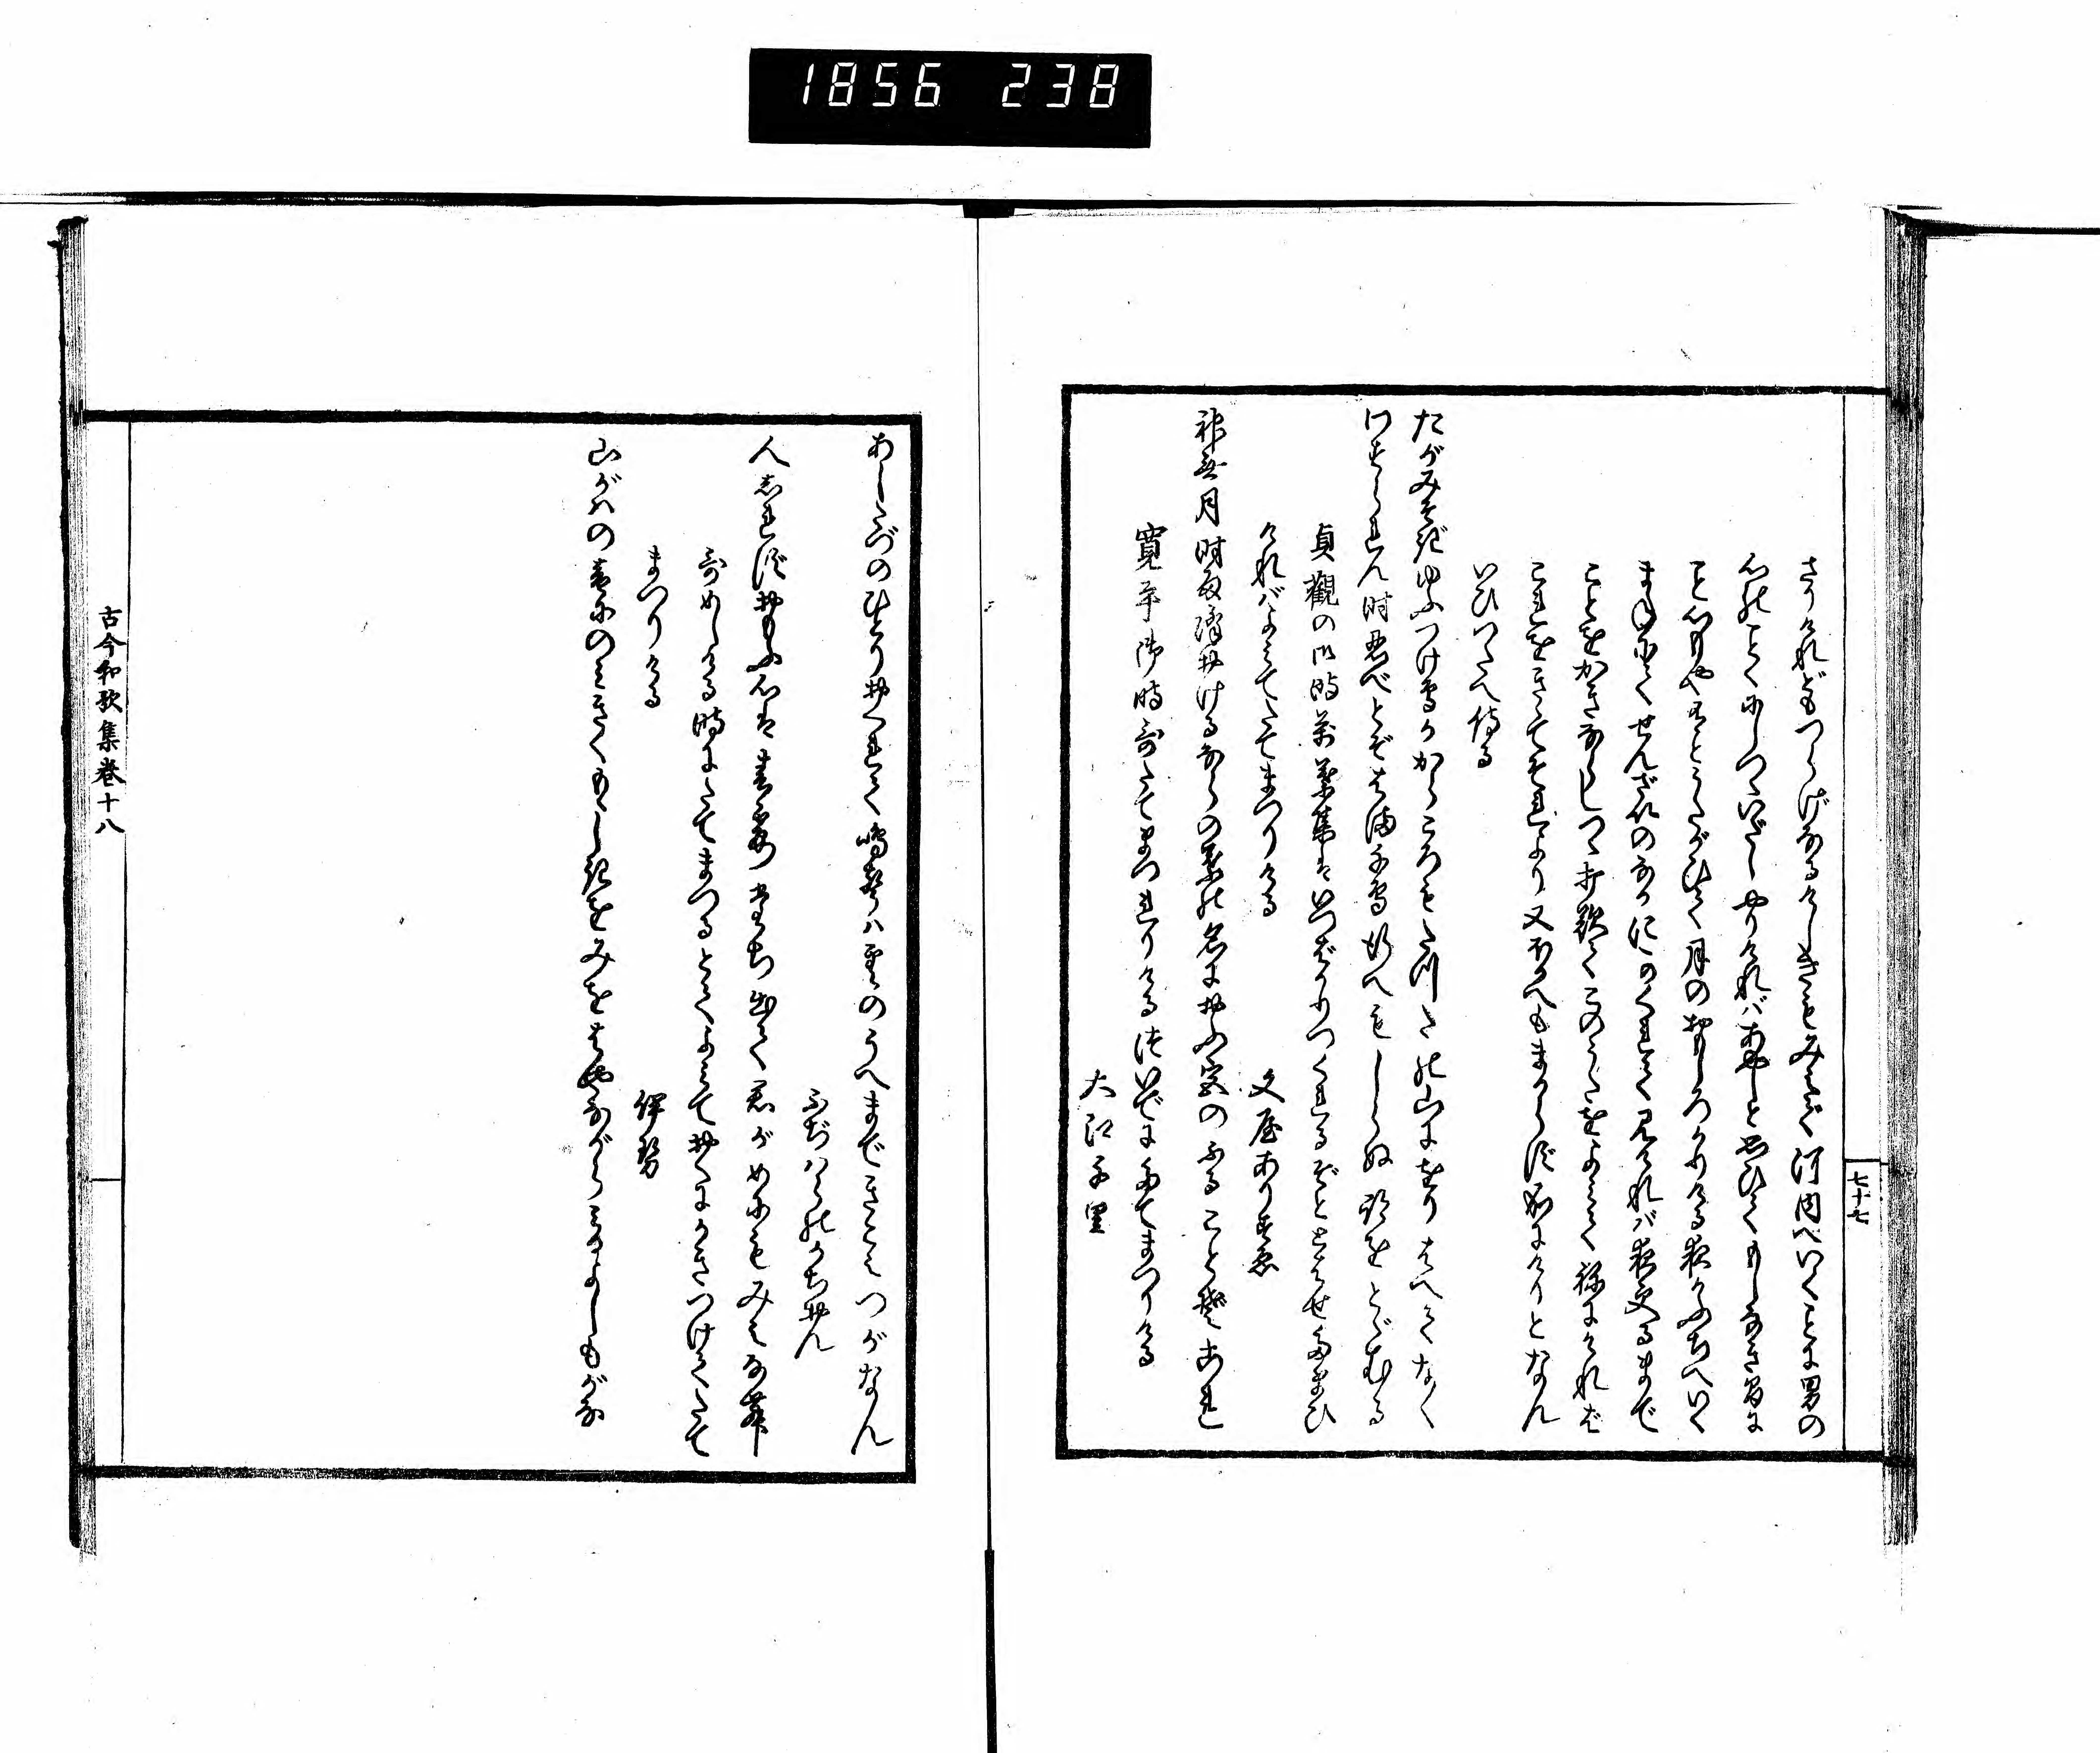 1856 238
七十七
さりけれどもつらげなるけしきもみえで河内へいくごとに男の
心のごとくにしつゝいだしやりければあやしと思ひてもしなきまに
こと心もやあるとうたがひて月のおもしろかりける夜かふちへいく
まねにてせんざいのなかにかくれて見ければ夜更るまで
ことをかきならしつゝ打歎てこのうたをよみてねにければ
これをきゝてそれより又ほかへもまからず成にけりとなん
いひつたへ侍る
たがみそぎゆふつけ鳥かからころもたつたの山にをりはへてなく
わすられん時忍べとぞはま千鳥行へもしらぬ跡をとゞむる
貞観の御時萬葉集はいつばかりつくれるぞととはせ給ひ
ければよみてたてまつりける
文屋ありすゑ
神無月時雨降おけるならの葉の名におふ宮のふることぞこれ
寛平御時哥たてまつれりけるついでにたてまつりける
大江千里
あしたづのひとりおくれて鳴聲ハ雲のうへまできこえつがなん
ふぢハらのかちおん
人しれず思ふ心は春霞たち出て君がめにもみえなむ
哥めしける時にたてまつるとてよみておくにかきつけてたて
まつりける
伊勢
山がハの音にのみきくもゝしきをみをはやながらみるよしもがな
古今和歌集巻十八